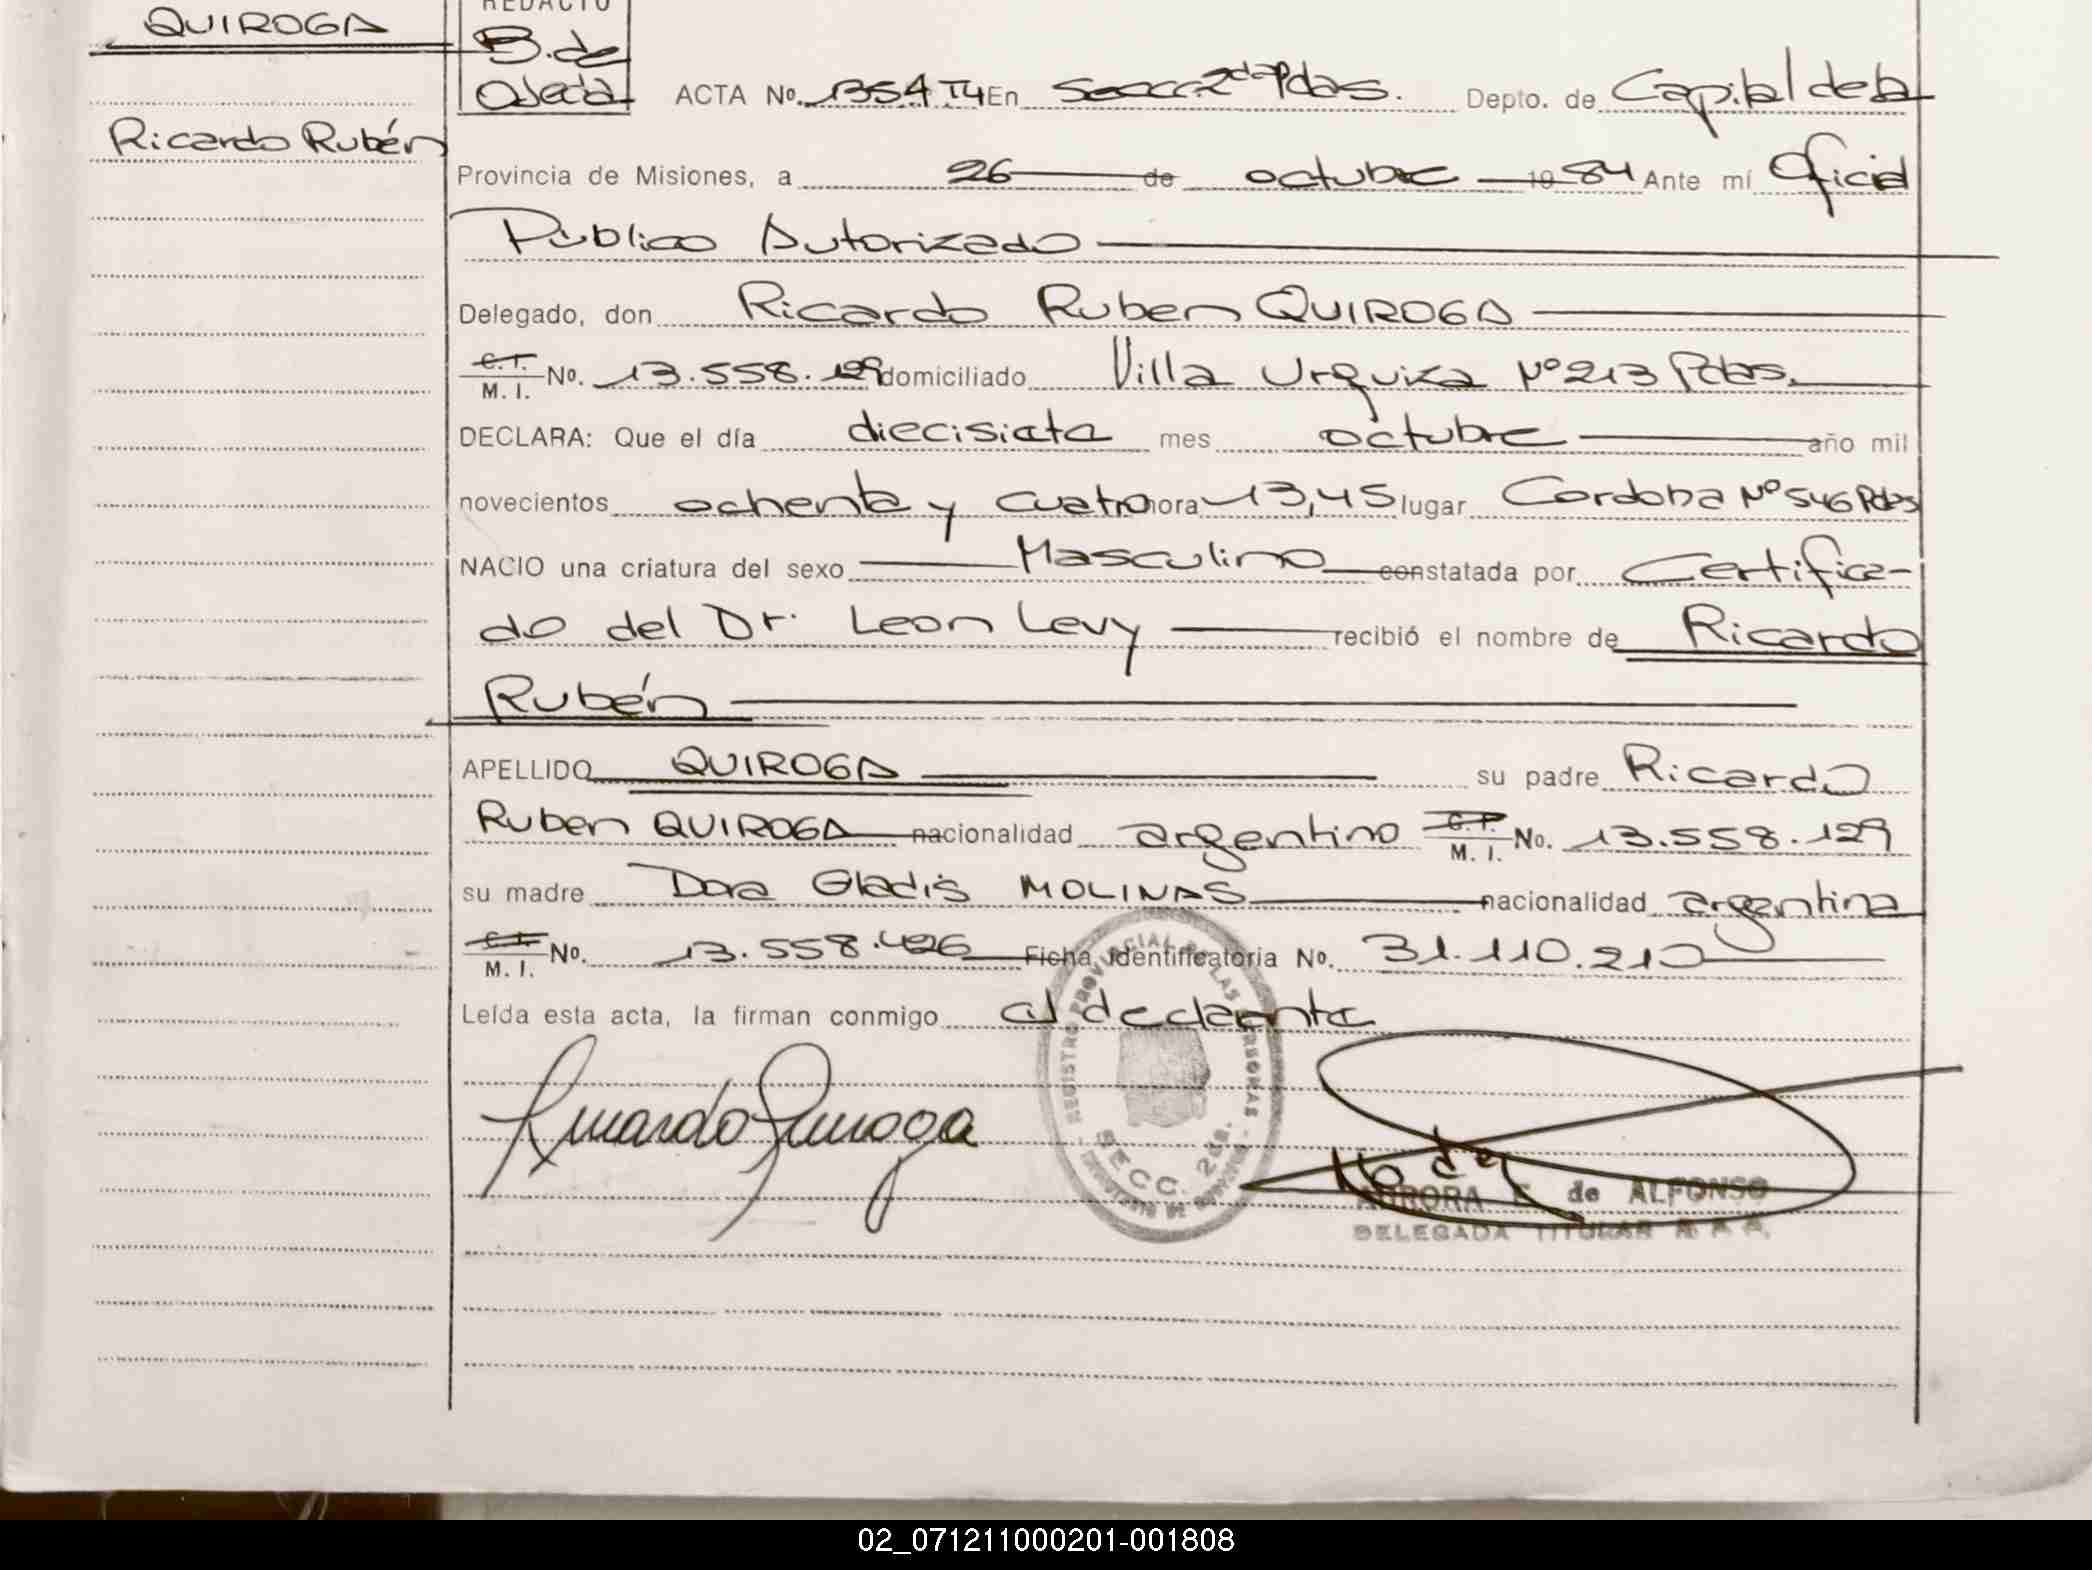 QUIROGA
Ricardo Rubén
REDACTO
B. de
Ojeda
ACTA No. 1354 T4 En Secc 2da Pdas. Depto. de Capital de la
Provincia de Misiones, a 26 de octubre 1984 Ante mí Oficial
Público Autorizado
Delegado, don Ricardo Ruben QUIROGA
C.I.
M. I. No. 13.558.129 domiciliado Villa Urquiza Nº 213 Pdas.
DECLARA: Que el día diecisiete mes octubre año mil
novecientos ochenta y cuatro hora 13,45 lugar Cordoba Nº 546 Pdas
NACIO una criatura del sexo Masculino constatada por Certifica-
do del Dr. Leon Levy recibió el nombre de Ricardo
Rubén
APELLIDO QUIROGA su padre Ricardo
Ruben QUIROGA nacionalidad argentino C.I.
M. I. No. 13.558.129
su madre Dora Gladis MOLINAS nacionalidad argentina
C.I.
M. I. No. 13.558.426 Ficha identificatoria No. 31.110.210
Leída esta acta, la firman conmigo el declarante
REGISTRO PROVINCIAL DE LAS PERSONAS
SECC. 2da.
Ricardo Quiroga
AURORA E. de ALFONSO
DELEGADA TITULAR
02_071211000201-001808